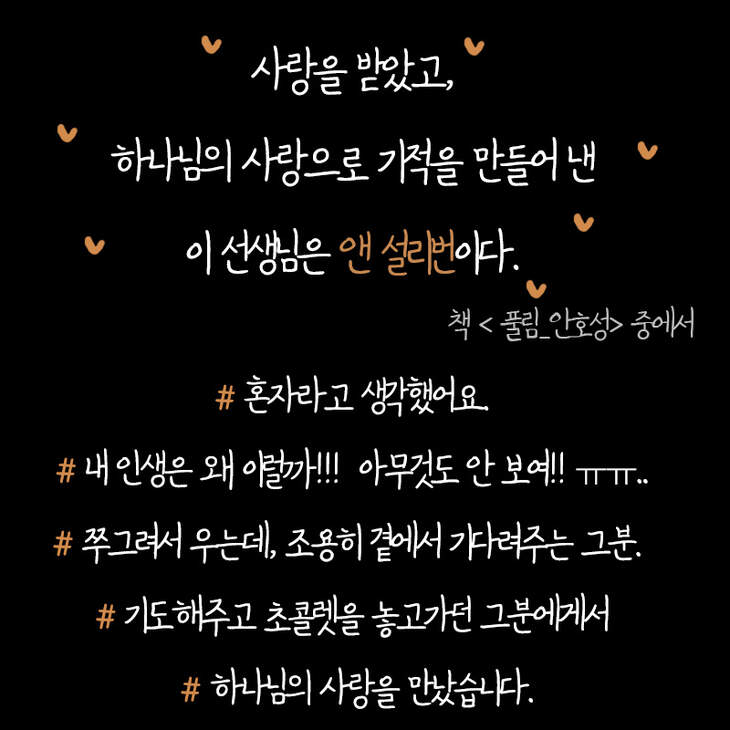 사랑을 받았고,
하나님의 사랑으로 기적을 만들어 낸
이 선생님은 앤 설리번이다.
책 < 풀림_안호성> 중에서
# 혼자라고 생각했어요.
# 내 인생은 왜 이럴까!!! 아무것도 안 보여!! ㅠㅠ..
# 쭈그려서 우는데, 조용히 곁에서 기다려주는 그분.
# 기도해주고 초콜렛을 놓고가던 그분에게서
# 하나님의 사랑을 만났습니다.